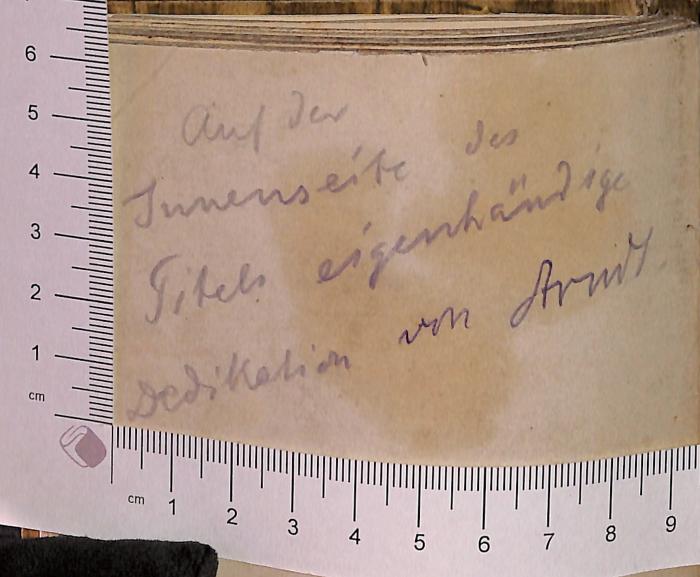 Auf der
Innenseite des
Titels eigenhändige
Dedikation von Arndt.
6
5
4
3
2
1
cm
cm 1 2 3 4 5 6 7 8 9